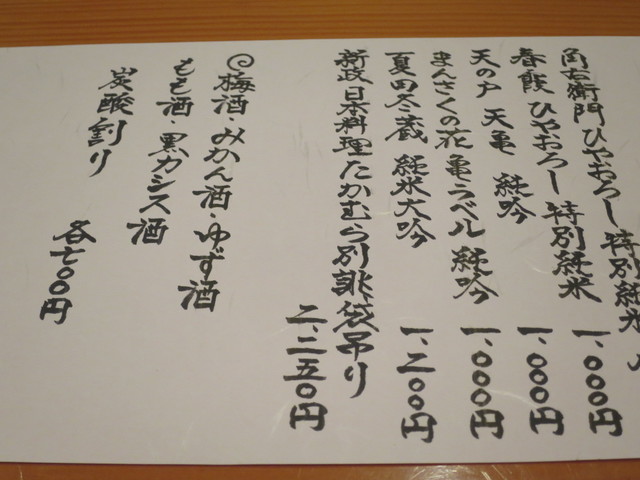 角右衛門 ひやおろし 特別純米 一、000円
春霞 ひやおろし 特別純米 一、000円
天の戸 天亀 純吟 一、000円
まんさくの花 亀ラベル 純吟
夏田冬蔵 純米大吟 一、二00円
新政 日本料理たかむら別誂 袋吊り 二、二五0円
◎梅酒・みかん酒・ゆず酒
もも酒 黒カシス酒
炭酸割り 各七00円